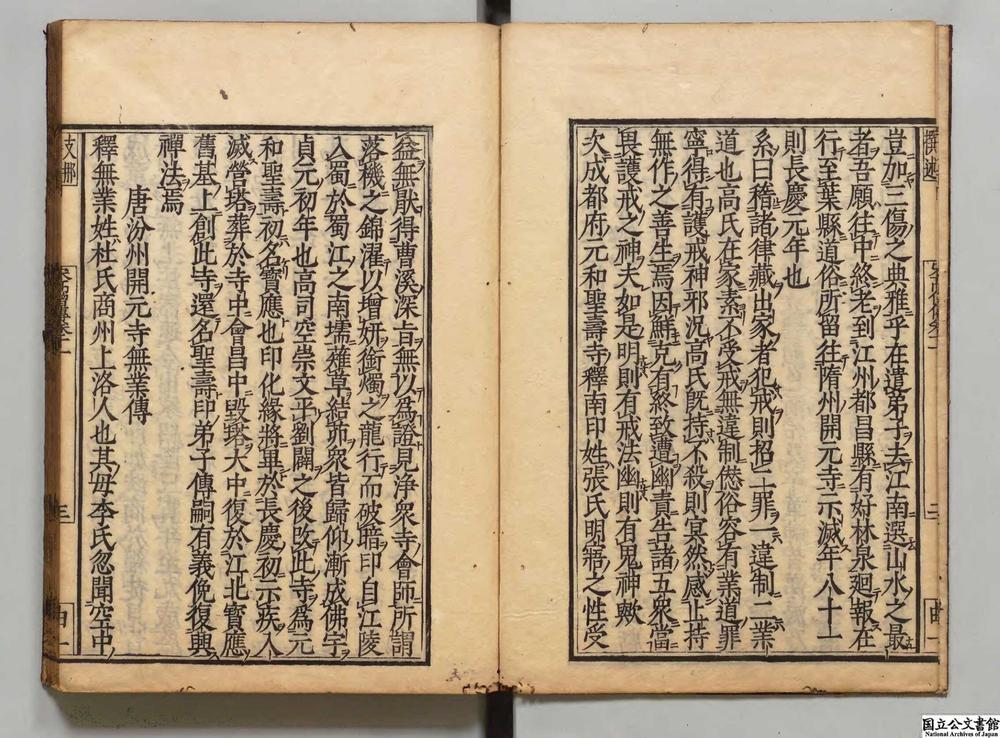 豈加三傷之典雅乎在遣弟子去江南選山水之最
者吾願往中終老到江州都昌縣有好林泉廻報在
行至葉縣道俗所留往隋州開元寺示滅年八十一
則長慶元年也
系曰稽諸律藏出家者犯戒則招二罪一違制二業
道也高氏在家素不受戒無違制愆俗容有業道罪
寧得有護戒神邪況高氏既持不殺則冥然感止持
無作之善生焉因鮮克有終致遭幽責告諸五衆當
與護戒之神夫如是明則有戒法幽則有鬼神歟
次成都府元和聖壽寺釋南印姓張氏明寤之性受
益無猒得曹溪深旨無以爲證見浄衆寺會師所謂
落機之錦濯以増妍銜燭之龍行而破暗印自江陵
入蜀於蜀江之南壖薙草結茆衆皆歸仰漸成佛宇
貞元初年也高司空崇文平劉闢之後改此寺爲元
和聖壽初名寶應也印化緣將畢於長慶初示疾入
滅營塔葬於寺中會昌中毀塔大中復於江北寶應
舊基上創此寺還名聖壽印弟子傳嗣有義俛復興
禪法焉
唐汾州開元寺無業傳
釋無業姓杜氏商州上洛人也其母李氏忽聞空中
国立公文書館
National Archives of Japan